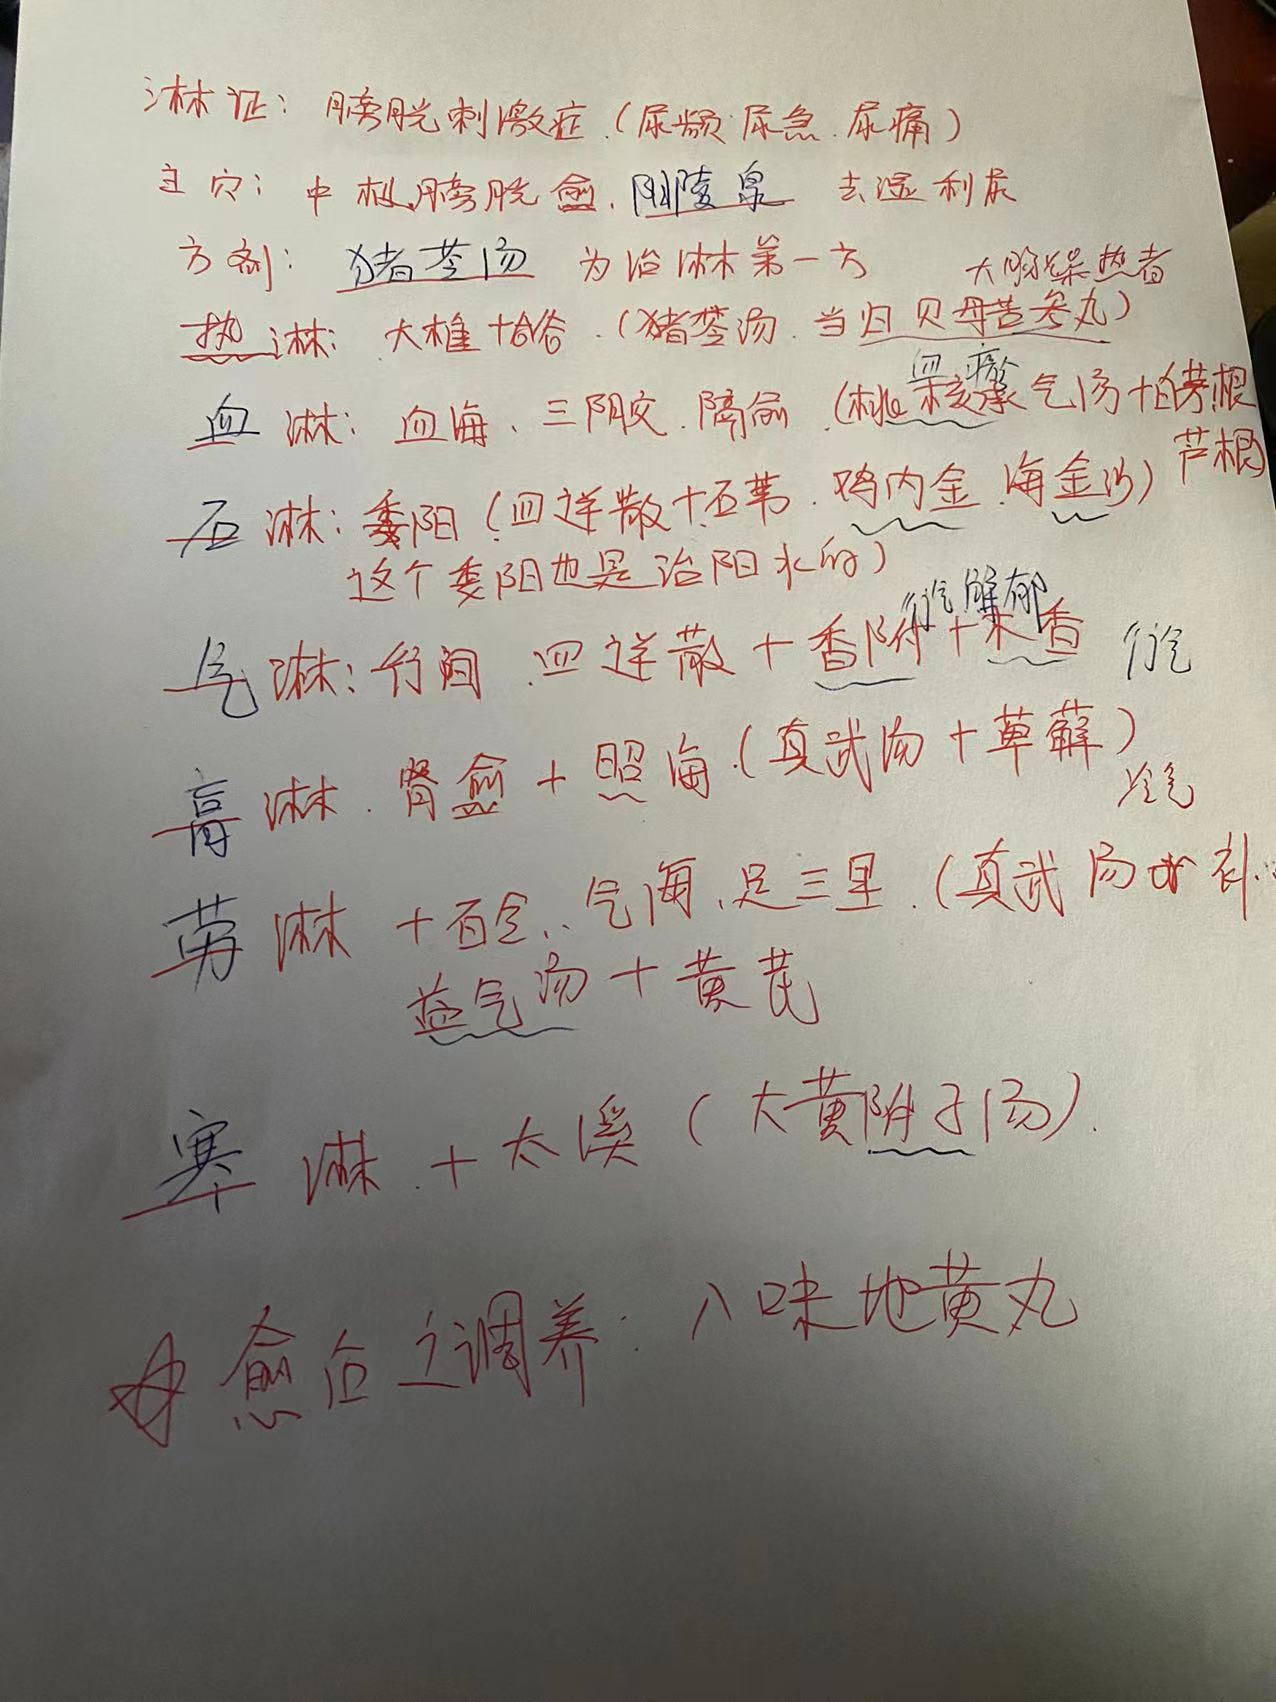 淋证：膀胱刺激症.（尿频.尿急.尿痛）
主穴：中极.膀胱俞.阴陵泉 去湿利尿
方剂：猪苓汤 为治淋第一方
大肠燥热者
热淋：大椎+合谷.（猪苓汤.当归贝母苦参丸）
血瘀
血淋：血海、三阴交.膈俞.（桃核承气汤+白茅根
芦根）
石淋：委阳（四逆散+石苇.鸡内金.海金沙）
这个委阳也是治阳水的）
行气解郁
气淋：行间.四逆散+香附+木香 行气
膏淋.肾俞+照海.（真武汤+萆薢）
冷气
劳淋+百会..气海.足三里.（真武汤或补
益气汤+黄芪
寒淋.+太溪（大黄附子汤）.
愈后之调养：八味地黄丸